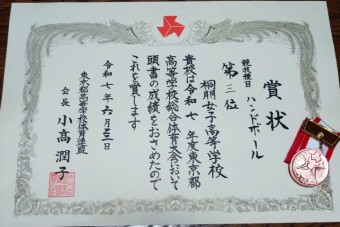 賞状
競技種目 ハンドボール
第三位
桐朋女子高等学校
貴校は令和七年度東京都
高等学校総合体育大会において
頭書の成績をおさめたので
これを賞します
令和七年六月
東京都高等学校体育連盟
会長 小高潤子